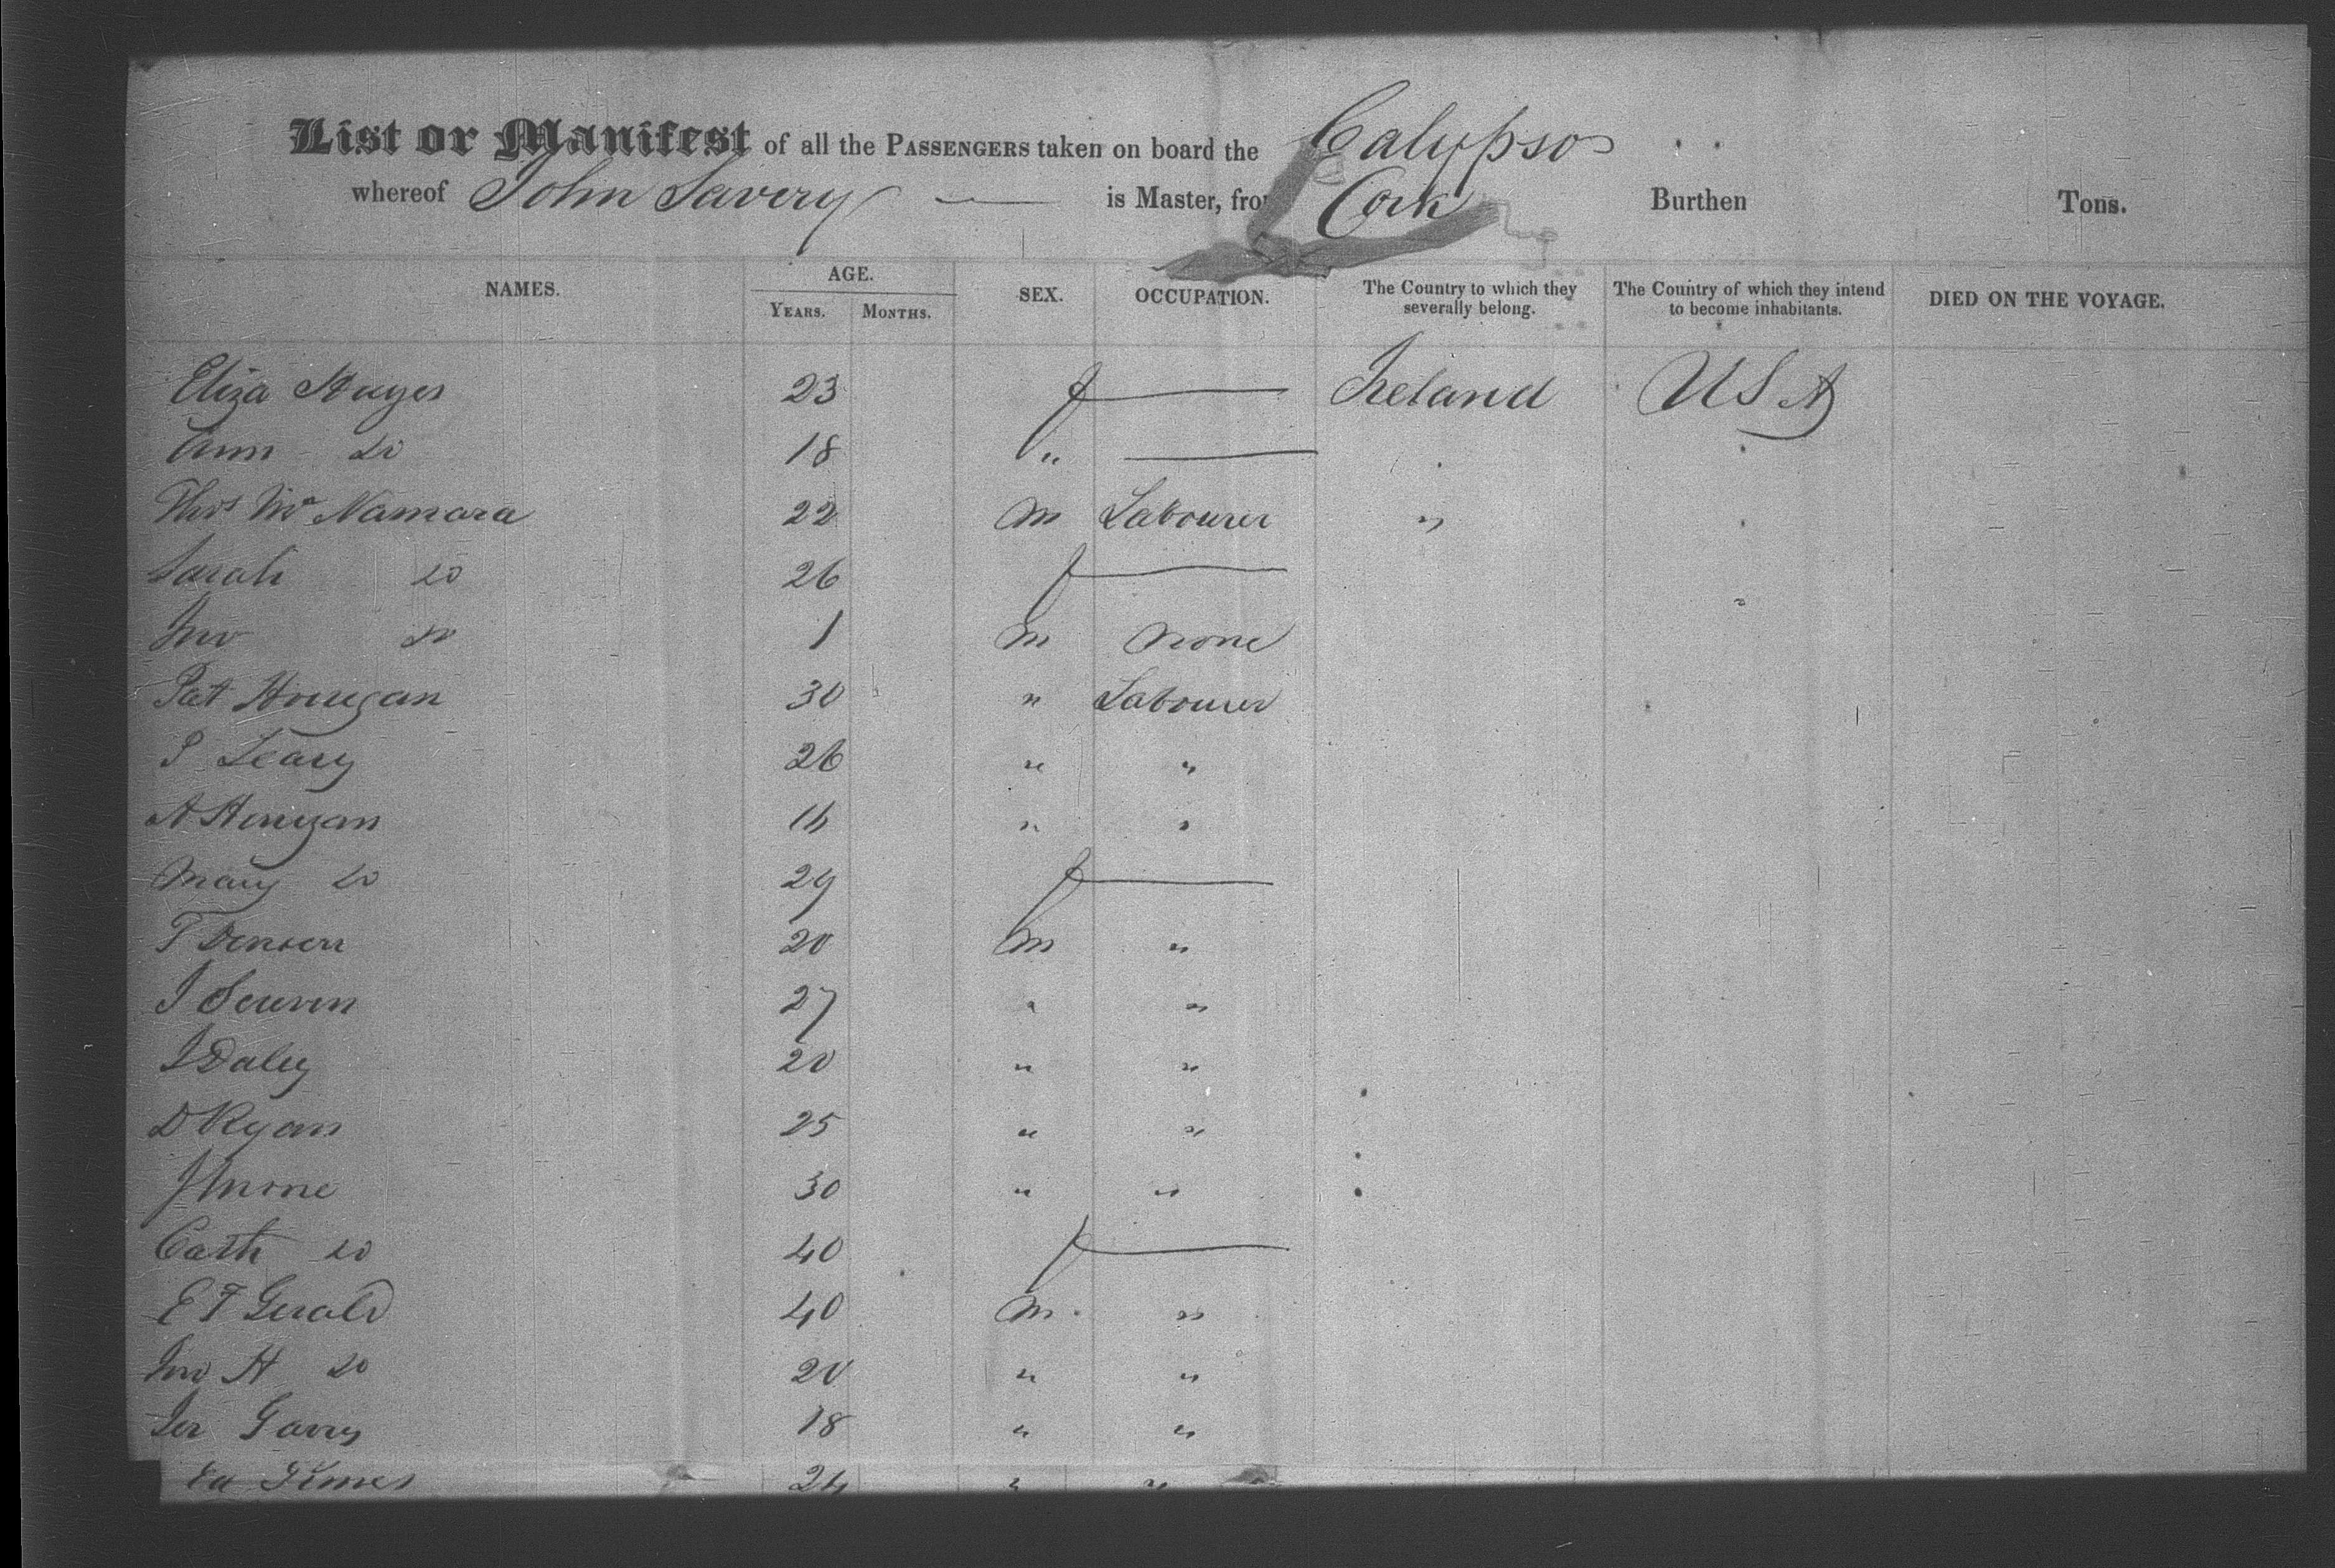 List or Manifest of all the PASSENGERS taken on board the Calypso
whereof John Savery is Master, from Cork Burthen Tons.
NAMES. AGE. SEX. OCCUPATION. The Country to which they severally belong. The Country of which they intend to become inhabitants. DIED ON THE VOYAGE.
YEARS. MONTHS.
Eliza Hayes 23 f — Ireland USA
Ann do 18 " —
Thos McNamara 22 M Labourer "
Sarah do 26 f — "
Jno do 1 M None
Pat 30 " Labourer
P Leary 26 " "
A " "
Mary do 29 f —
T 20 M "
J 27 " "
J Daley 20 " "
D Ryan 25 " "
J 30 " "
Cath do 40 f —
E F Gerald 40 M "
Jno H do 20 " "
Jer 18 " "
24 " "